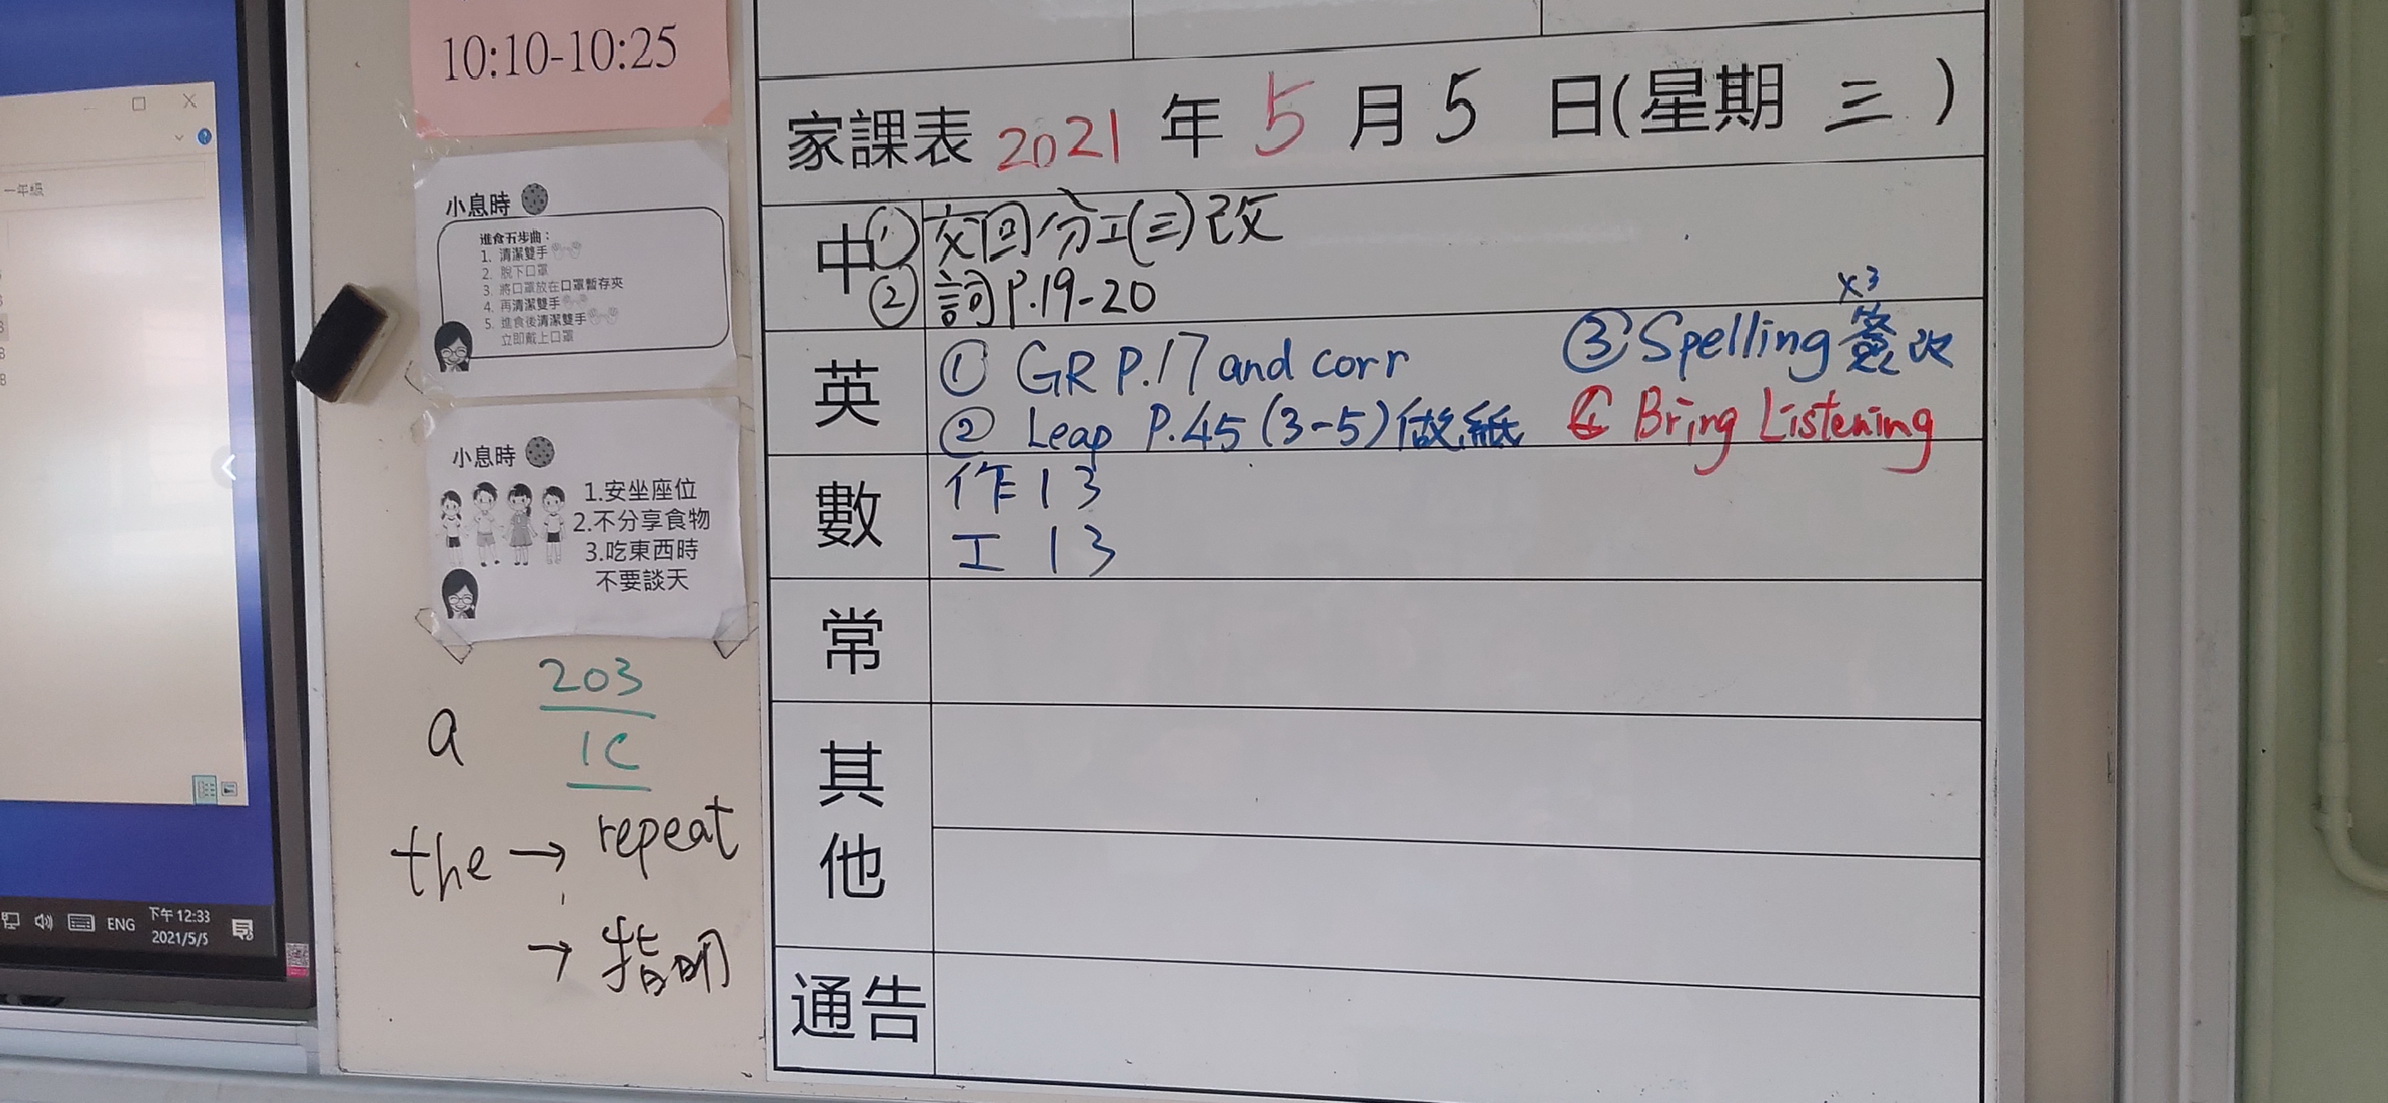 10:10-10:25
小息時
進食五步曲：
1. 清潔雙手
2. 脫下口罩
3. 將口罩放在口罩暫存夾
4. 再清潔雙手
5. 進食後清潔雙手
立即戴上口罩
小息時
1.安坐座位
2.不分享食物
3.吃東西時
不要談天
203
1C
a
the → repeat
→ 指明
一年級
ENG
下午 12:33
2021/5/5
家課表 2021 年 5 月 5 日(星期 三 )
中
① 交回分工(三)改
② 詞P.19-20
英
① GR P.17 and corr
② Leap P.45 (3-5) 做紙
x3
③ Spelling 簽改
④ Bring Listening
數
作 13
工 13
常
其他
通告